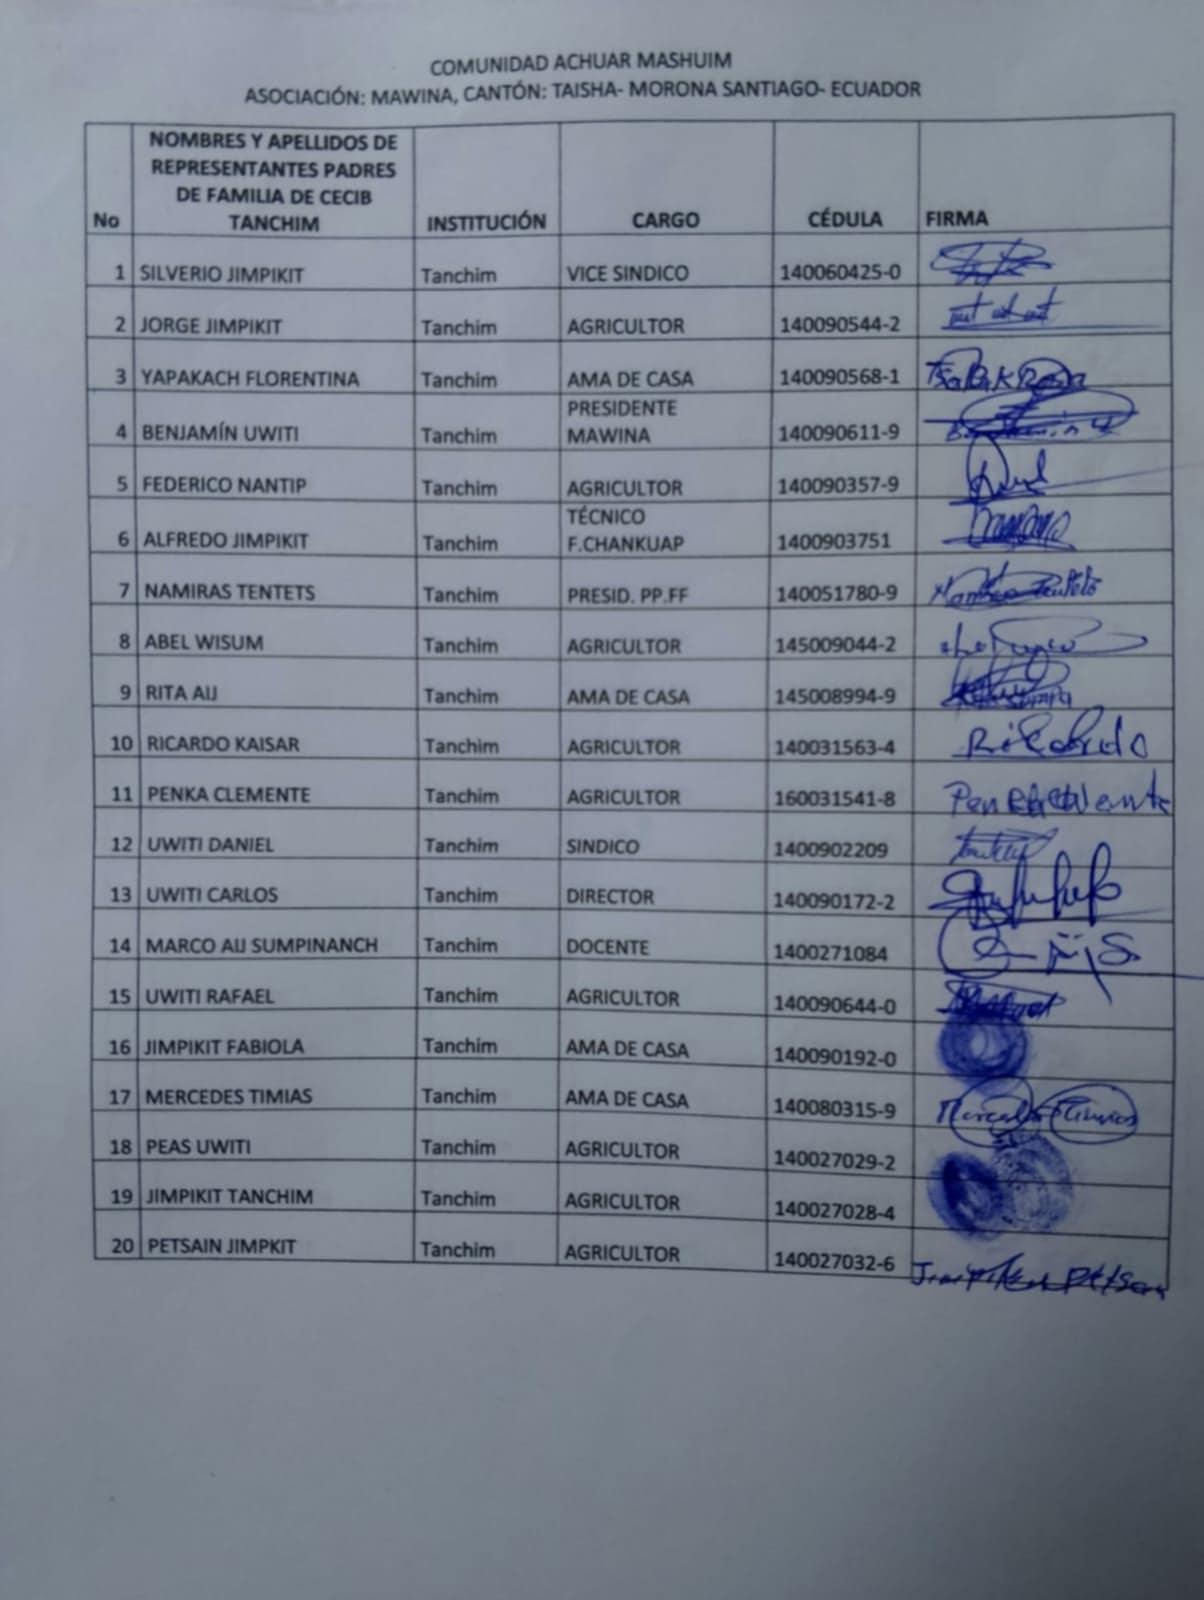 COMUNIDAD ACHUAR MASHUIM
ASOCIACIÓN: MAWINA, CANTÓN: TAISHA- MORONA SANTIAGO- ECUADOR
No NOMBRES Y APELLIDOS DE REPRESENTANTES PADRES DE FAMILIA DE CECIB TANCHIM INSTITUCIÓN CARGO CÉDULA FIRMA
1 SILVERIO JIMPIKIT Tanchim VICE SINDICO 140060425-0
2 JORGE JIMPIKIT Tanchim AGRICULTOR 140090544-2
3 YAPAKACH FLORENTINA Tanchim AMA DE CASA 140090568-1
4 BENJAMÍN UWITI Tanchim PRESIDENTE MAWINA 140090611-9
5 FEDERICO NANTIP Tanchim AGRICULTOR 140090357-9
6 ALFREDO JIMPIKIT Tanchim TÉCNICO F.CHANKUAP 1400903751
7 NAMIRAS TENTETS Tanchim PRESID. PP.FF 140051780-9
8 ABEL WISUM Tanchim AGRICULTOR 145009044-2
9 RITA AIJ Tanchim AMA DE CASA 145008994-9
10 RICARDO KAISAR Tanchim AGRICULTOR 140031563-4 Ricardo
11 PENKA CLEMENTE Tanchim AGRICULTOR 160031541-8
12 UWITI DANIEL Tanchim SINDICO 1400902209
13 UWITI CARLOS Tanchim DIRECTOR 140090172-2
14 MARCO AIJ SUMPINANCH Tanchim DOCENTE 1400271084
15 UWITI RAFAEL Tanchim AGRICULTOR 140090644-0
16 JIMPIKIT FABIOLA Tanchim AMA DE CASA 140090192-0
17 MERCEDES TIMIAS Tanchim AMA DE CASA 140080315-9
18 PEAS UWITI Tanchim AGRICULTOR 140027029-2
19 JIMPIKIT TANCHIM Tanchim AGRICULTOR 140027028-4
20 PETSAIN JIMPKIT Tanchim AGRICULTOR 140027032-6